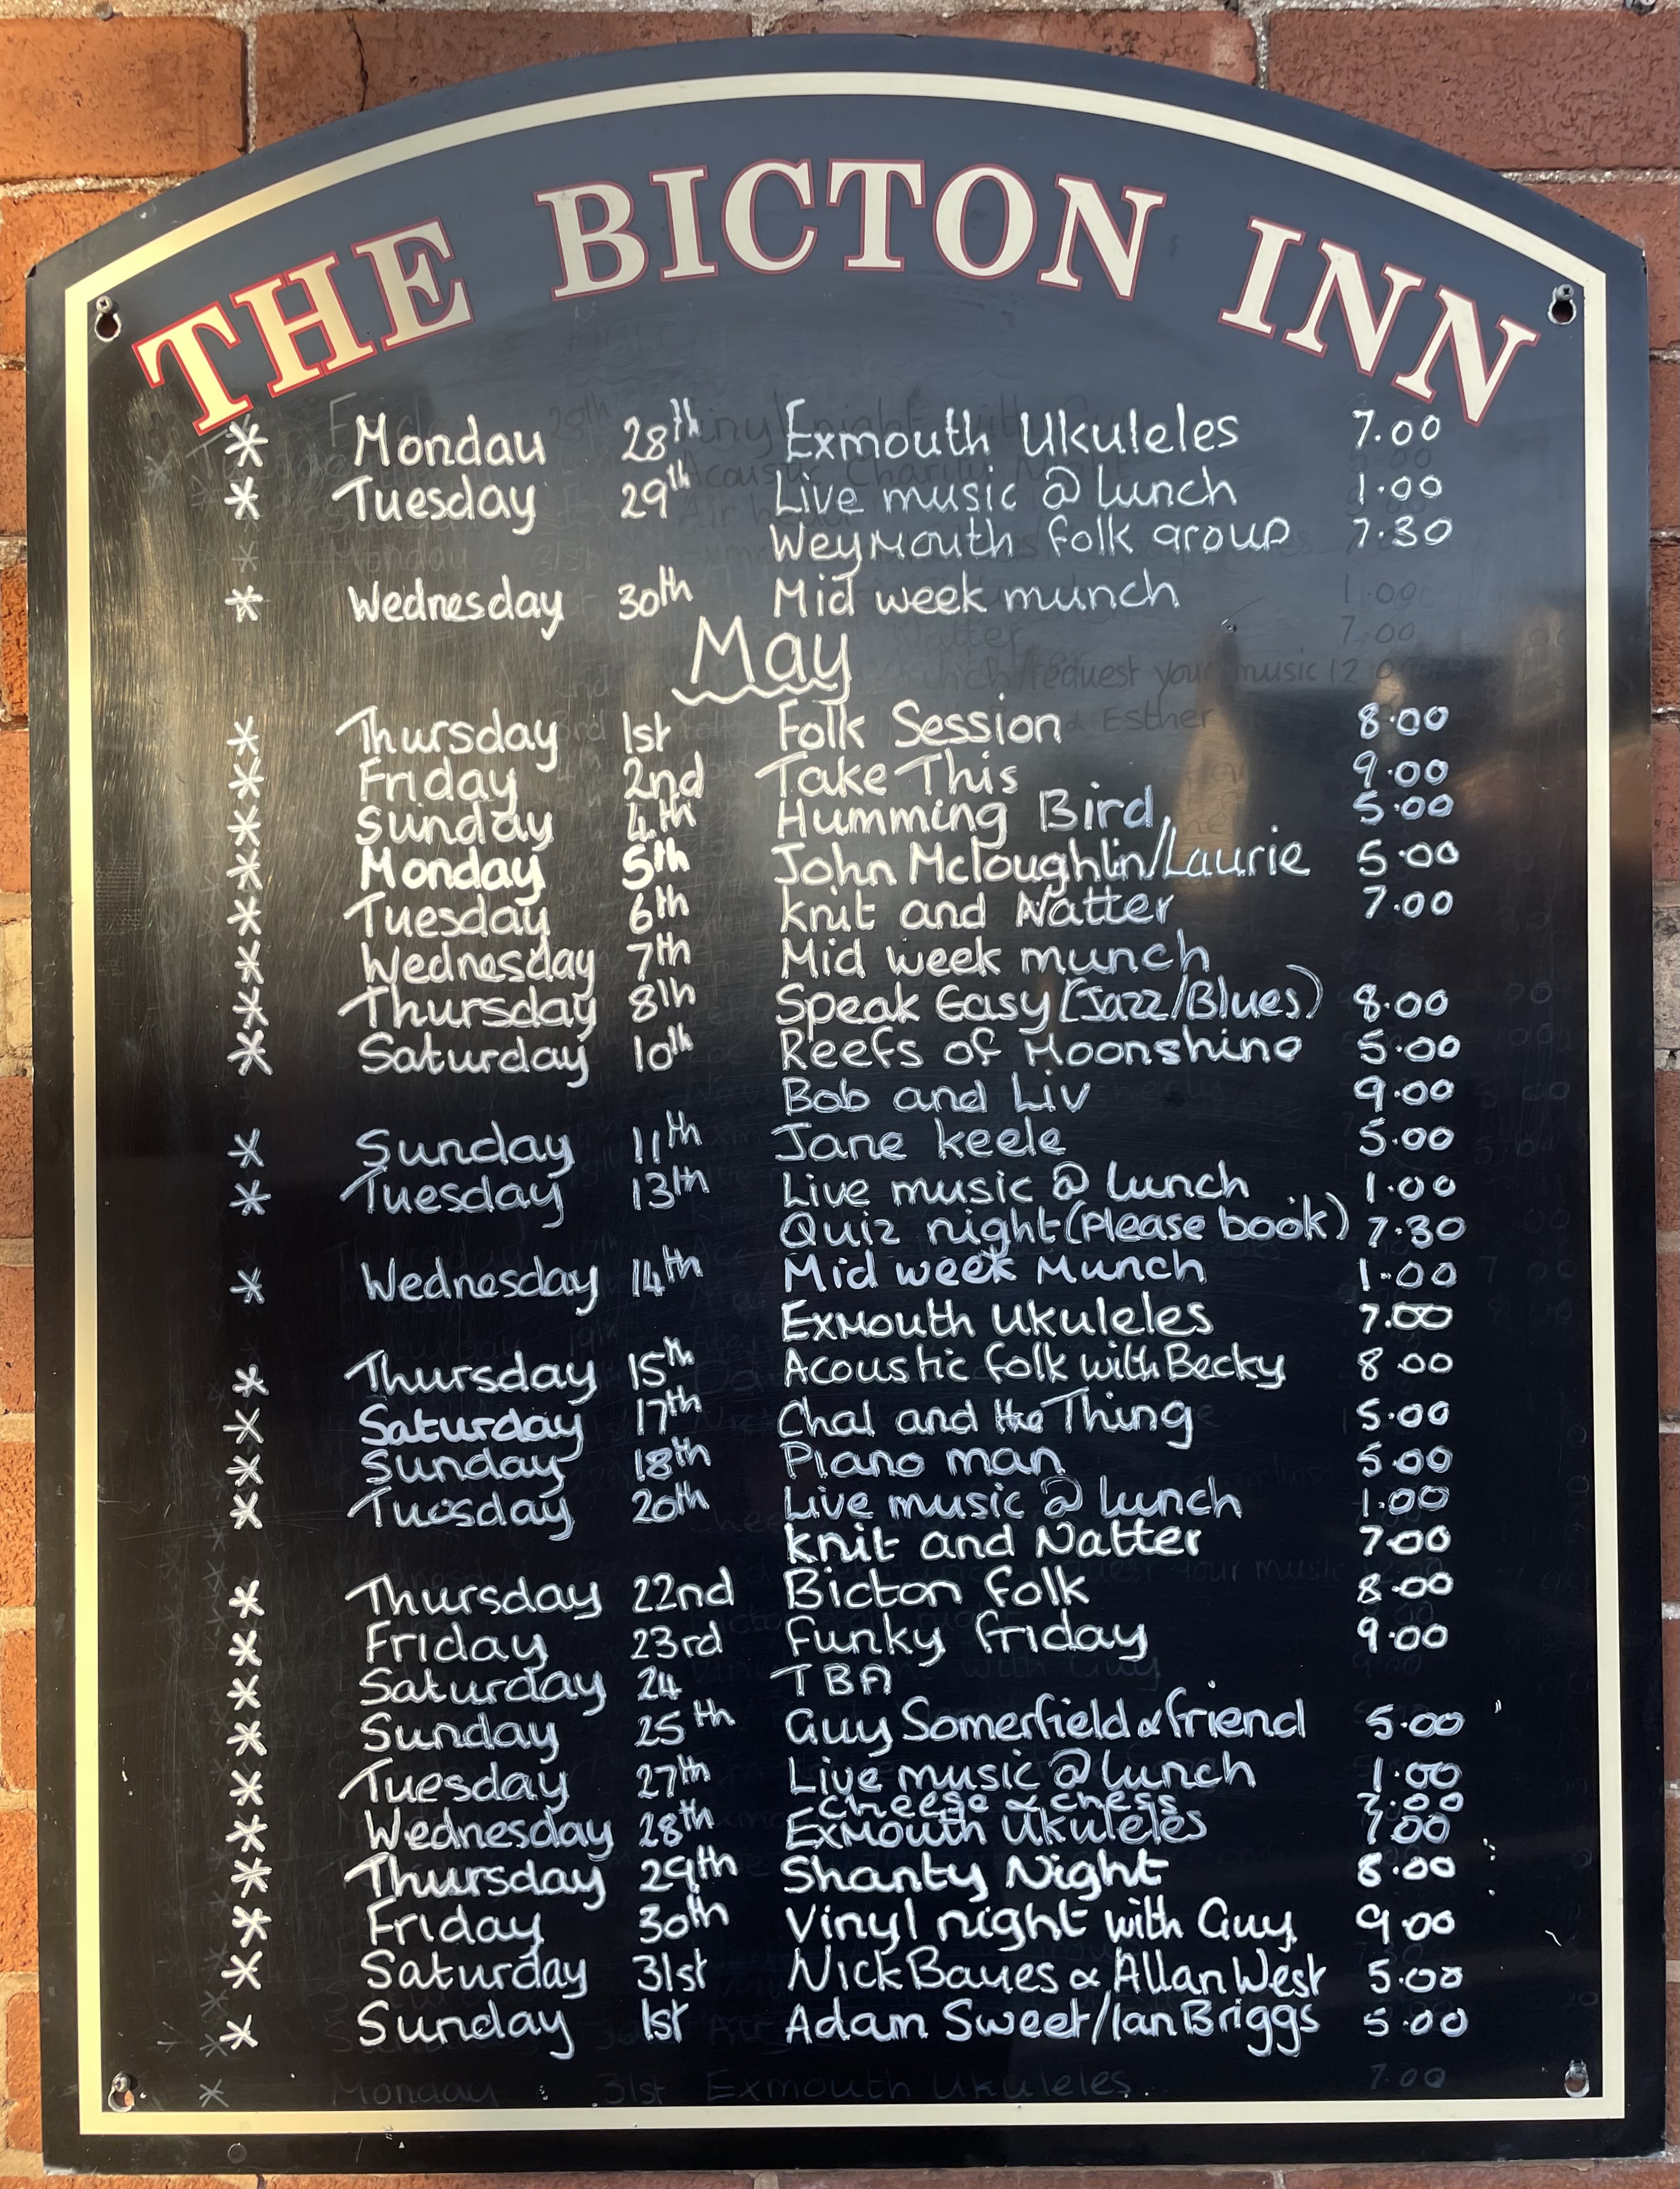 THE BICTON INN
* Monday 28th Exmouth Ukuleles 7.00
* Tuesday 29th Live music @ lunch 1.00
Weymouth folk group 7.30
* Wednesday 30th Mid week munch
May
* Thursday 1st Folk Session 8.00
* Friday 2nd Take This 9.00
* Sunday 4th Humming Bird 5.00
* Monday 5th John Mcloughlin/Laurie 5.00
* Tuesday 6th knit and Natter 7.00
* Wednesday 7th Mid week munch
* Thursday 8th Speak Easy (Jazz/Blues) 8.00
* Saturday 10th Reefs of Moonshine 5.00
Bob and Liv 9.00
* Sunday 11th Jane keele 5.00
* Tuesday 13th Live music @ lunch 1.00
Quiz night (Please book) 7.30
* Wednesday 14th Mid week Munch 1.00
Exmouth Ukuleles 7.00
* Thursday 15th Acoustic folk with Becky 8.00
* Saturday 17th Chal and the Thing 5.00
* Sunday 18th Piano man 5.00
* Tuesday 20th Live music @ lunch 1.00
knit and Natter 7.00
* Thursday 22nd Bicton folk 8.00
* Friday 23rd Funky friday 9.00
* Saturday 24 TBA
* Sunday 25th Guy Somerfield & friend 5.00
* Tuesday 27th Live music @ lunch 1.00
cheese & chess 7.00
* Wednesday 28th Exmouth Ukuleles 7.00
* Thursday 29th Shanty Night 8.00
* Friday 30th Vinyl night with Guy 9.00
* Saturday 31st Nick Bayes & Allan West 5.00
* Sunday 1st Adam Sweet/Ian Briggs 5.00
* Monday 31st Exmouth Ukuleles 7.00